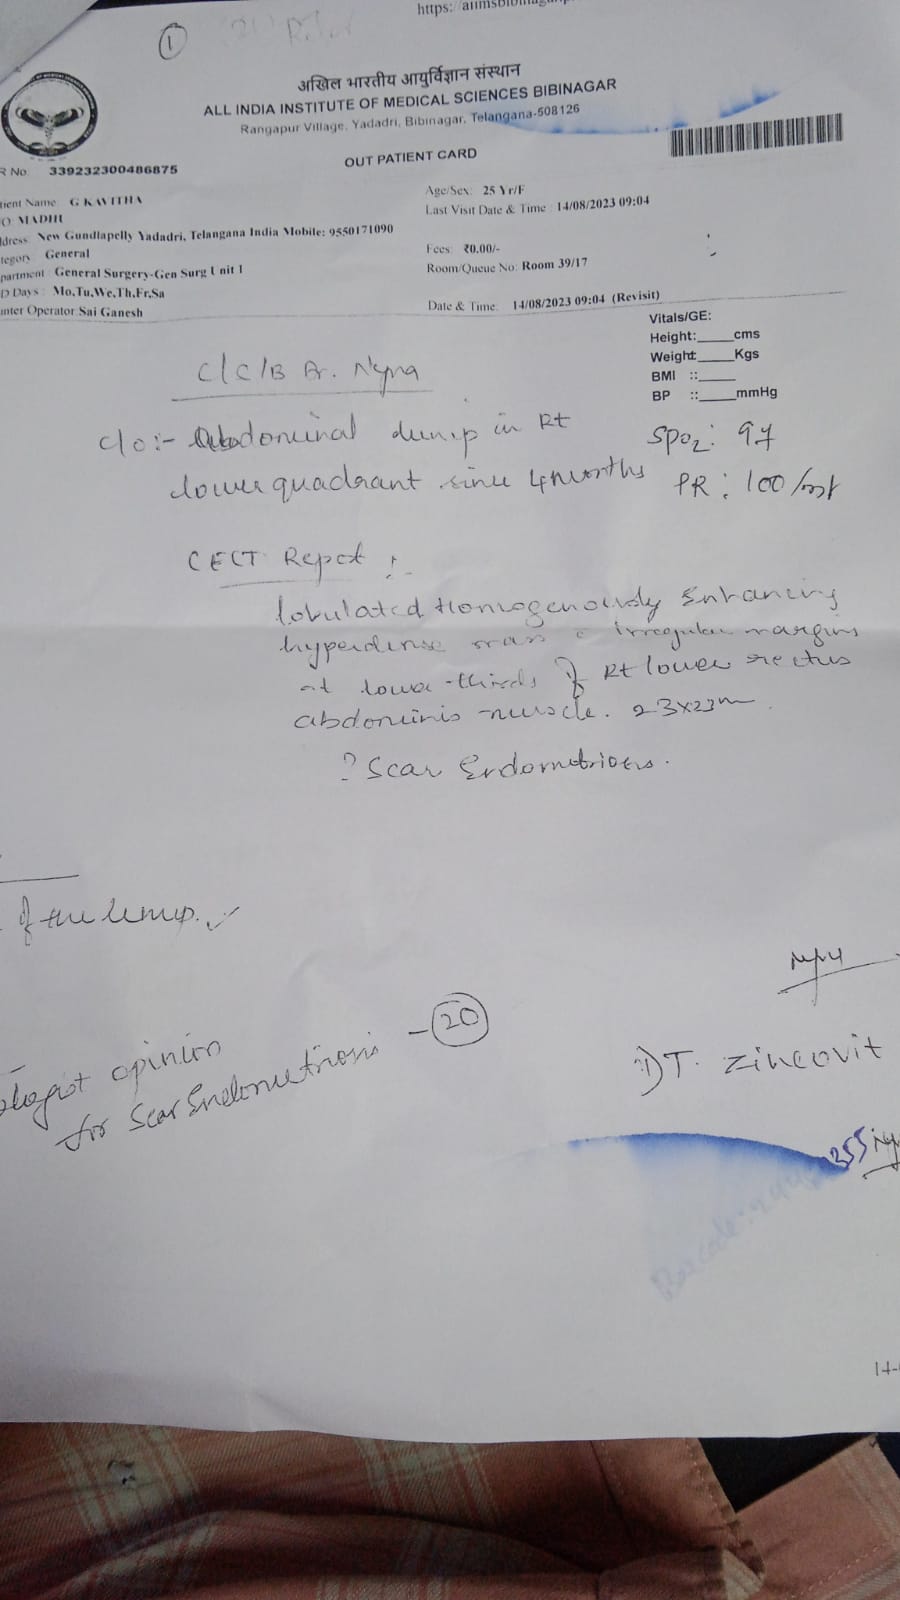 https: aiimsbibinagar
1
अखिल भारतीय आयुर्विज्ञान संस्थान
ALL INDIA INSTITUTE OF MEDICAL SCIENCES BIBINAGAR
Rangapur Village, Yadadri, Bibinagar, Telangana-508126
OUT PATIENT CARD
R No: 339232300486875
tient Name: G KAVITHA
O: MADHU
ddress: New Gundlapelly Yadadri, Telangana India Mobile: 9550171090
tegory: General
partment: General Surgery-Gen Surg Unit 1
D Days: Mo,Tu,We,Th,Fr,Sa
unter Operator Sai Ganesh
Age/Sex: 25 Yr/F
Last Visit Date & Time: 14/08/2023 09:04
Fees: ₹0.00/-
Room/Queue No: Room 39/17
Date & Time: 14/08/2023 09:04 (Revisit)
Vitals/GE:
Height:_____cms
Weight:_____Kgs
BMI ::_____
BP ::_____mmHg
SpO2: 97
PR: 100/mt
C/C/B Dr.
C/o:- Abdominal lump in Rt
lower quadrant since 4 months
CECT Report:-
lobulated Homogenously Enhancing
hyperdense mass c irregular margins
at lower-thirds of Rt lower rectus
abdominis muscle. 23x23m
? Scar Endometriosis.
of the lump.
ologist opinion
for Scar Endometriosis - 20
1) T. Zincovit
355
14-